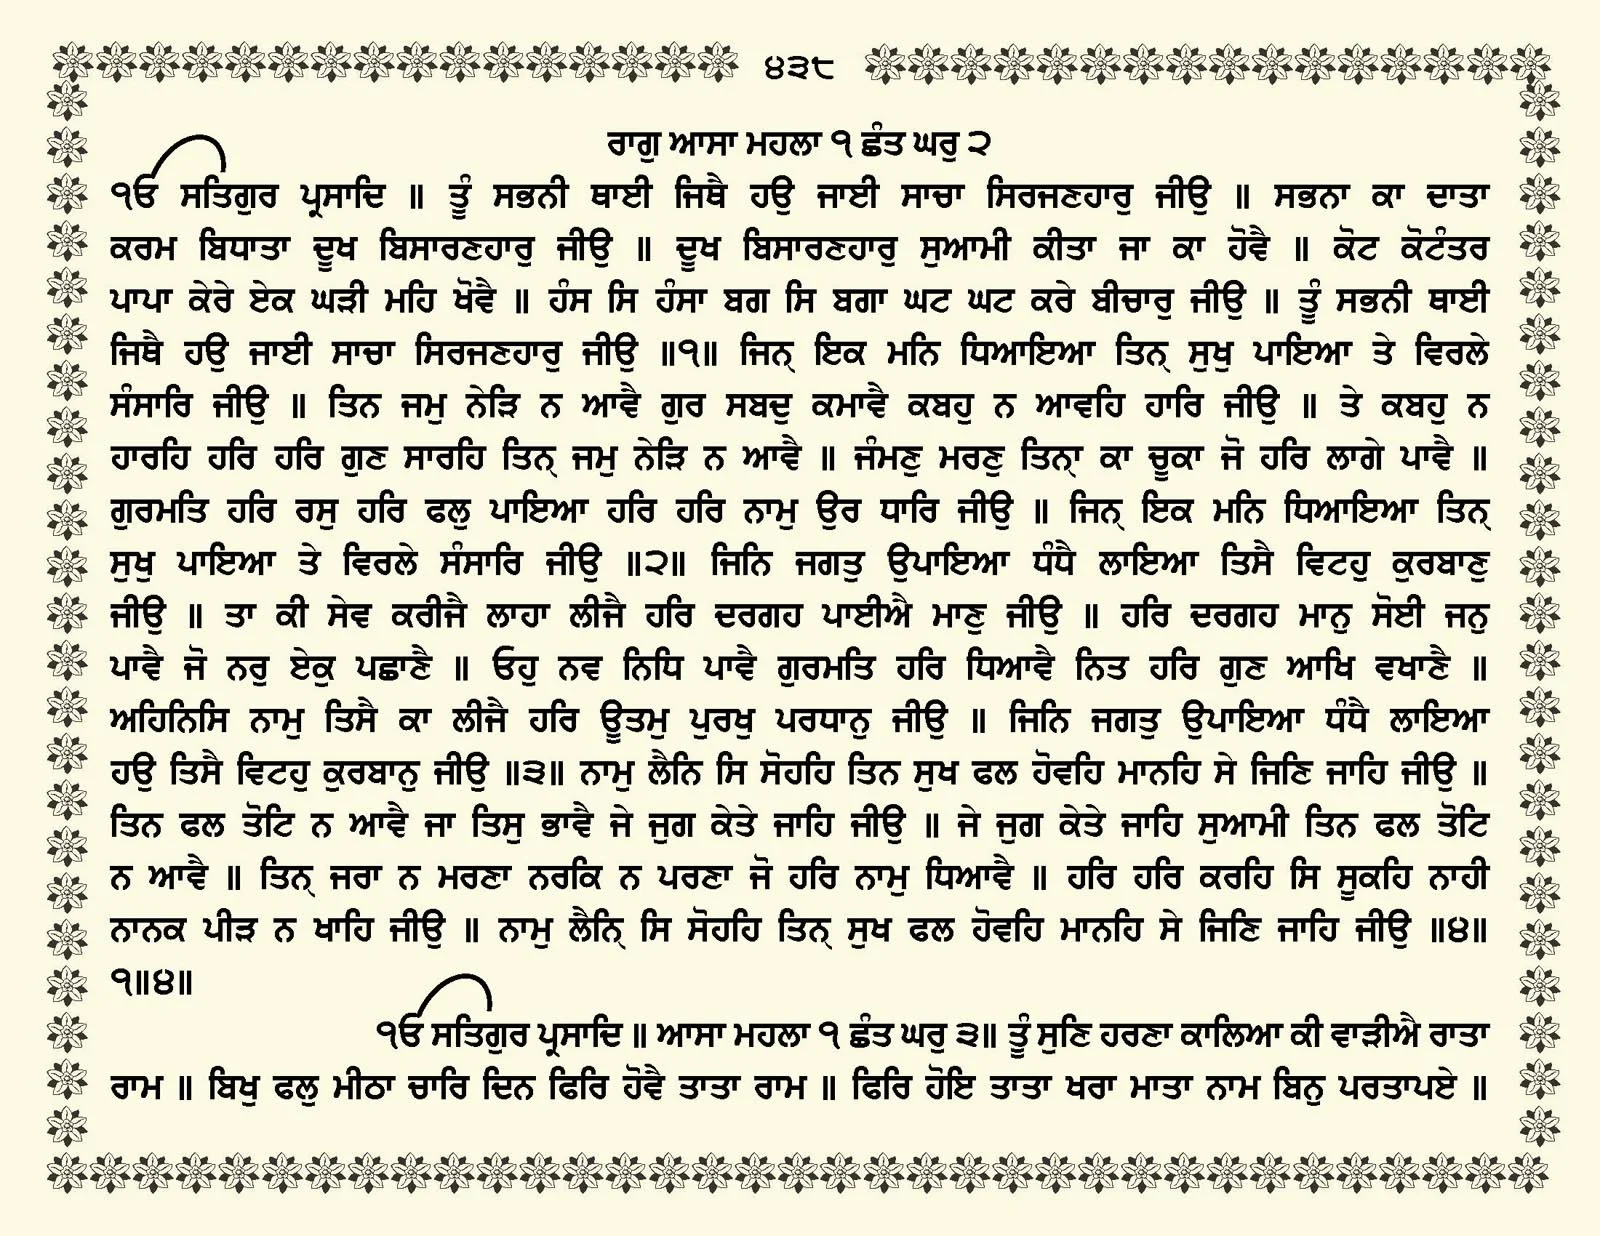 ੪੩੮
ਰਾਗੁ ਆਸਾ ਮਹਲਾ ੧ ਛੰਤ ਘਰੁ ੨
ੴ ਸਤਿਗੁਰ ਪ੍ਰਸਾਦਿ ॥ ਤੂੰ ਸਭਨੀ ਥਾਈ ਜਿਥੈ ਹਉ ਜਾਈ ਸਾਚਾ ਸਿਰਜਣਹਾਰੁ ਜੀਉ ॥ ਸਭਨਾ ਕਾ ਦਾਤਾ
ਕਰਮ ਬਿਧਾਤਾ ਦੂਖ ਬਿਸਾਰਣਹਾਰੁ ਜੀਉ ॥ ਦੂਖ ਬਿਸਾਰਣਹਾਰੁ ਸੁਆਮੀ ਕੀਤਾ ਜਾ ਕਾ ਹੋਵੈ ॥ ਕੋਟ ਕੋਟੰਤਰ
ਪਾਪਾ ਕੇਰੇ ਏਕ ਘੜੀ ਮਹਿ ਖੋਵੈ ॥ ਹੰਸ ਸਿ ਹੰਸਾ ਬਗ ਸਿ ਬਗਾ ਘਟ ਘਟ ਕਰੇ ਬੀਚਾਰੁ ਜੀਉ ॥ ਤੂੰ ਸਭਨੀ ਥਾਈ
ਜਿਥੈ ਹਉ ਜਾਈ ਸਾਚਾ ਸਿਰਜਣਹਾਰੁ ਜੀਉ ॥੧॥ ਜਿਨ੍ ਇਕ ਮਨਿ ਧਿਆਇਆ ਤਿਨ੍ ਸੁਖੁ ਪਾਇਆ ਤੇ ਵਿਰਲੇ
ਸੰਸਾਰਿ ਜੀਉ ॥ ਤਿਨ ਜਮੁ ਨੇੜਿ ਨ ਆਵੈ ਗੁਰ ਸਬਦੁ ਕਮਾਵੈ ਕਬਹੁ ਨ ਆਵਹਿ ਹਾਰਿ ਜੀਉ ॥ ਤੇ ਕਬਹੁ ਨ
ਹਾਰਹਿ ਹਰਿ ਹਰਿ ਗੁਣ ਸਾਰਹਿ ਤਿਨ੍ ਜਮੁ ਨੇੜਿ ਨ ਆਵੈ ॥ ਜੰਮਣੁ ਮਰਣੁ ਤਿਨ੍ਾ ਕਾ ਚੂਕਾ ਜੋ ਹਰਿ ਲਾਗੇ ਪਾਵੈ ॥
ਗੁਰਮਤਿ ਹਰਿ ਰਸੁ ਹਰਿ ਫਲੁ ਪਾਇਆ ਹਰਿ ਹਰਿ ਨਾਮੁ ਉਰ ਧਾਰਿ ਜੀਉ ॥ ਜਿਨ੍ ਇਕ ਮਨਿ ਧਿਆਇਆ ਤਿਨ੍
ਸੁਖੁ ਪਾਇਆ ਤੇ ਵਿਰਲੇ ਸੰਸਾਰਿ ਜੀਉ ॥੨॥ ਜਿਨਿ ਜਗਤੁ ਉਪਾਇਆ ਧੰਧੈ ਲਾਇਆ ਤਿਸੈ ਵਿਟਹੁ ਕੁਰਬਾਣੁ
ਜੀਉ ॥ ਤਾ ਕੀ ਸੇਵ ਕਰੀਜੈ ਲਾਹਾ ਲੀਜੈ ਹਰਿ ਦਰਗਹ ਪਾਈਐ ਮਾਣੁ ਜੀਉ ॥ ਹਰਿ ਦਰਗਹ ਮਾਨੁ ਸੋਈ ਜਨੁ
ਪਾਵੈ ਜੋ ਨਰੁ ਏਕੁ ਪਛਾਣੈ ॥ ਓਹੁ ਨਵ ਨਿਧਿ ਪਾਵੈ ਗੁਰਮਤਿ ਹਰਿ ਧਿਆਵੈ ਨਿਤ ਹਰਿ ਗੁਣ ਆਖਿ ਵਖਾਣੈ ॥
ਅਹਿਨਿਸਿ ਨਾਮੁ ਤਿਸੈ ਕਾ ਲੀਜੈ ਹਰਿ ਊਤਮੁ ਪੁਰਖੁ ਪਰਧਾਨੁ ਜੀਉ ॥ ਜਿਨਿ ਜਗਤੁ ਉਪਾਇਆ ਧੰਧੈ ਲਾਇਆ
ਹਉ ਤਿਸੈ ਵਿਟਹੁ ਕੁਰਬਾਨੁ ਜੀਉ ॥੩॥ ਨਾਮੁ ਲੈਨਿ ਸਿ ਸੋਹਹਿ ਤਿਨ ਸੁਖ ਫਲ ਹੋਵਹਿ ਮਾਨਹਿ ਸੇ ਜਿਣਿ ਜਾਹਿ ਜੀਉ ॥
ਤਿਨ ਫਲ ਤੋਟਿ ਨ ਆਵੈ ਜਾ ਤਿਸੁ ਭਾਵੈ ਜੇ ਜੁਗ ਕੇਤੇ ਜਾਹਿ ਜੀਉ ॥ ਜੇ ਜੁਗ ਕੇਤੇ ਜਾਹਿ ਸੁਆਮੀ ਤਿਨ ਫਲ ਤੋਟਿ
ਨ ਆਵੈ ॥ ਤਿਨ੍ ਜਰਾ ਨ ਮਰਣਾ ਨਰਕਿ ਨ ਪਰਣਾ ਜੋ ਹਰਿ ਨਾਮੁ ਧਿਆਵੈ ॥ ਹਰਿ ਹਰਿ ਕਰਹਿ ਸਿ ਸੂਕਹਿ ਨਾਹੀ
ਨਾਨਕ ਪੀੜ ਨ ਖਾਹਿ ਜੀਉ ॥ ਨਾਮੁ ਲੈਨਿ੍ ਸਿ ਸੋਹਹਿ ਤਿਨ੍ ਸੁਖ ਫਲ ਹੋਵਹਿ ਮਾਨਹਿ ਸੇ ਜਿਣਿ ਜਾਹਿ ਜੀਉ ॥੪॥
੧॥੪॥
ੴ ਸਤਿਗੁਰ ਪ੍ਰਸਾਦਿ ॥ ਆਸਾ ਮਹਲਾ ੧ ਛੰਤ ਘਰੁ ੩॥ ਤੂੰ ਸੁਣਿ ਹਰਣਾ ਕਾਲਿਆ ਕੀ ਵਾੜੀਐ ਰਾਤਾ
ਰਾਮ ॥ ਬਿਖੁ ਫਲੁ ਮੀਠਾ ਚਾਰਿ ਦਿਨ ਫਿਰਿ ਹੋਵੈ ਤਾਤਾ ਰਾਮ ॥ ਫਿਰਿ ਹੋਇ ਤਾਤਾ ਖਰਾ ਮਾਤਾ ਨਾਮ ਬਿਨੁ ਪਰਤਾਪਏ ॥